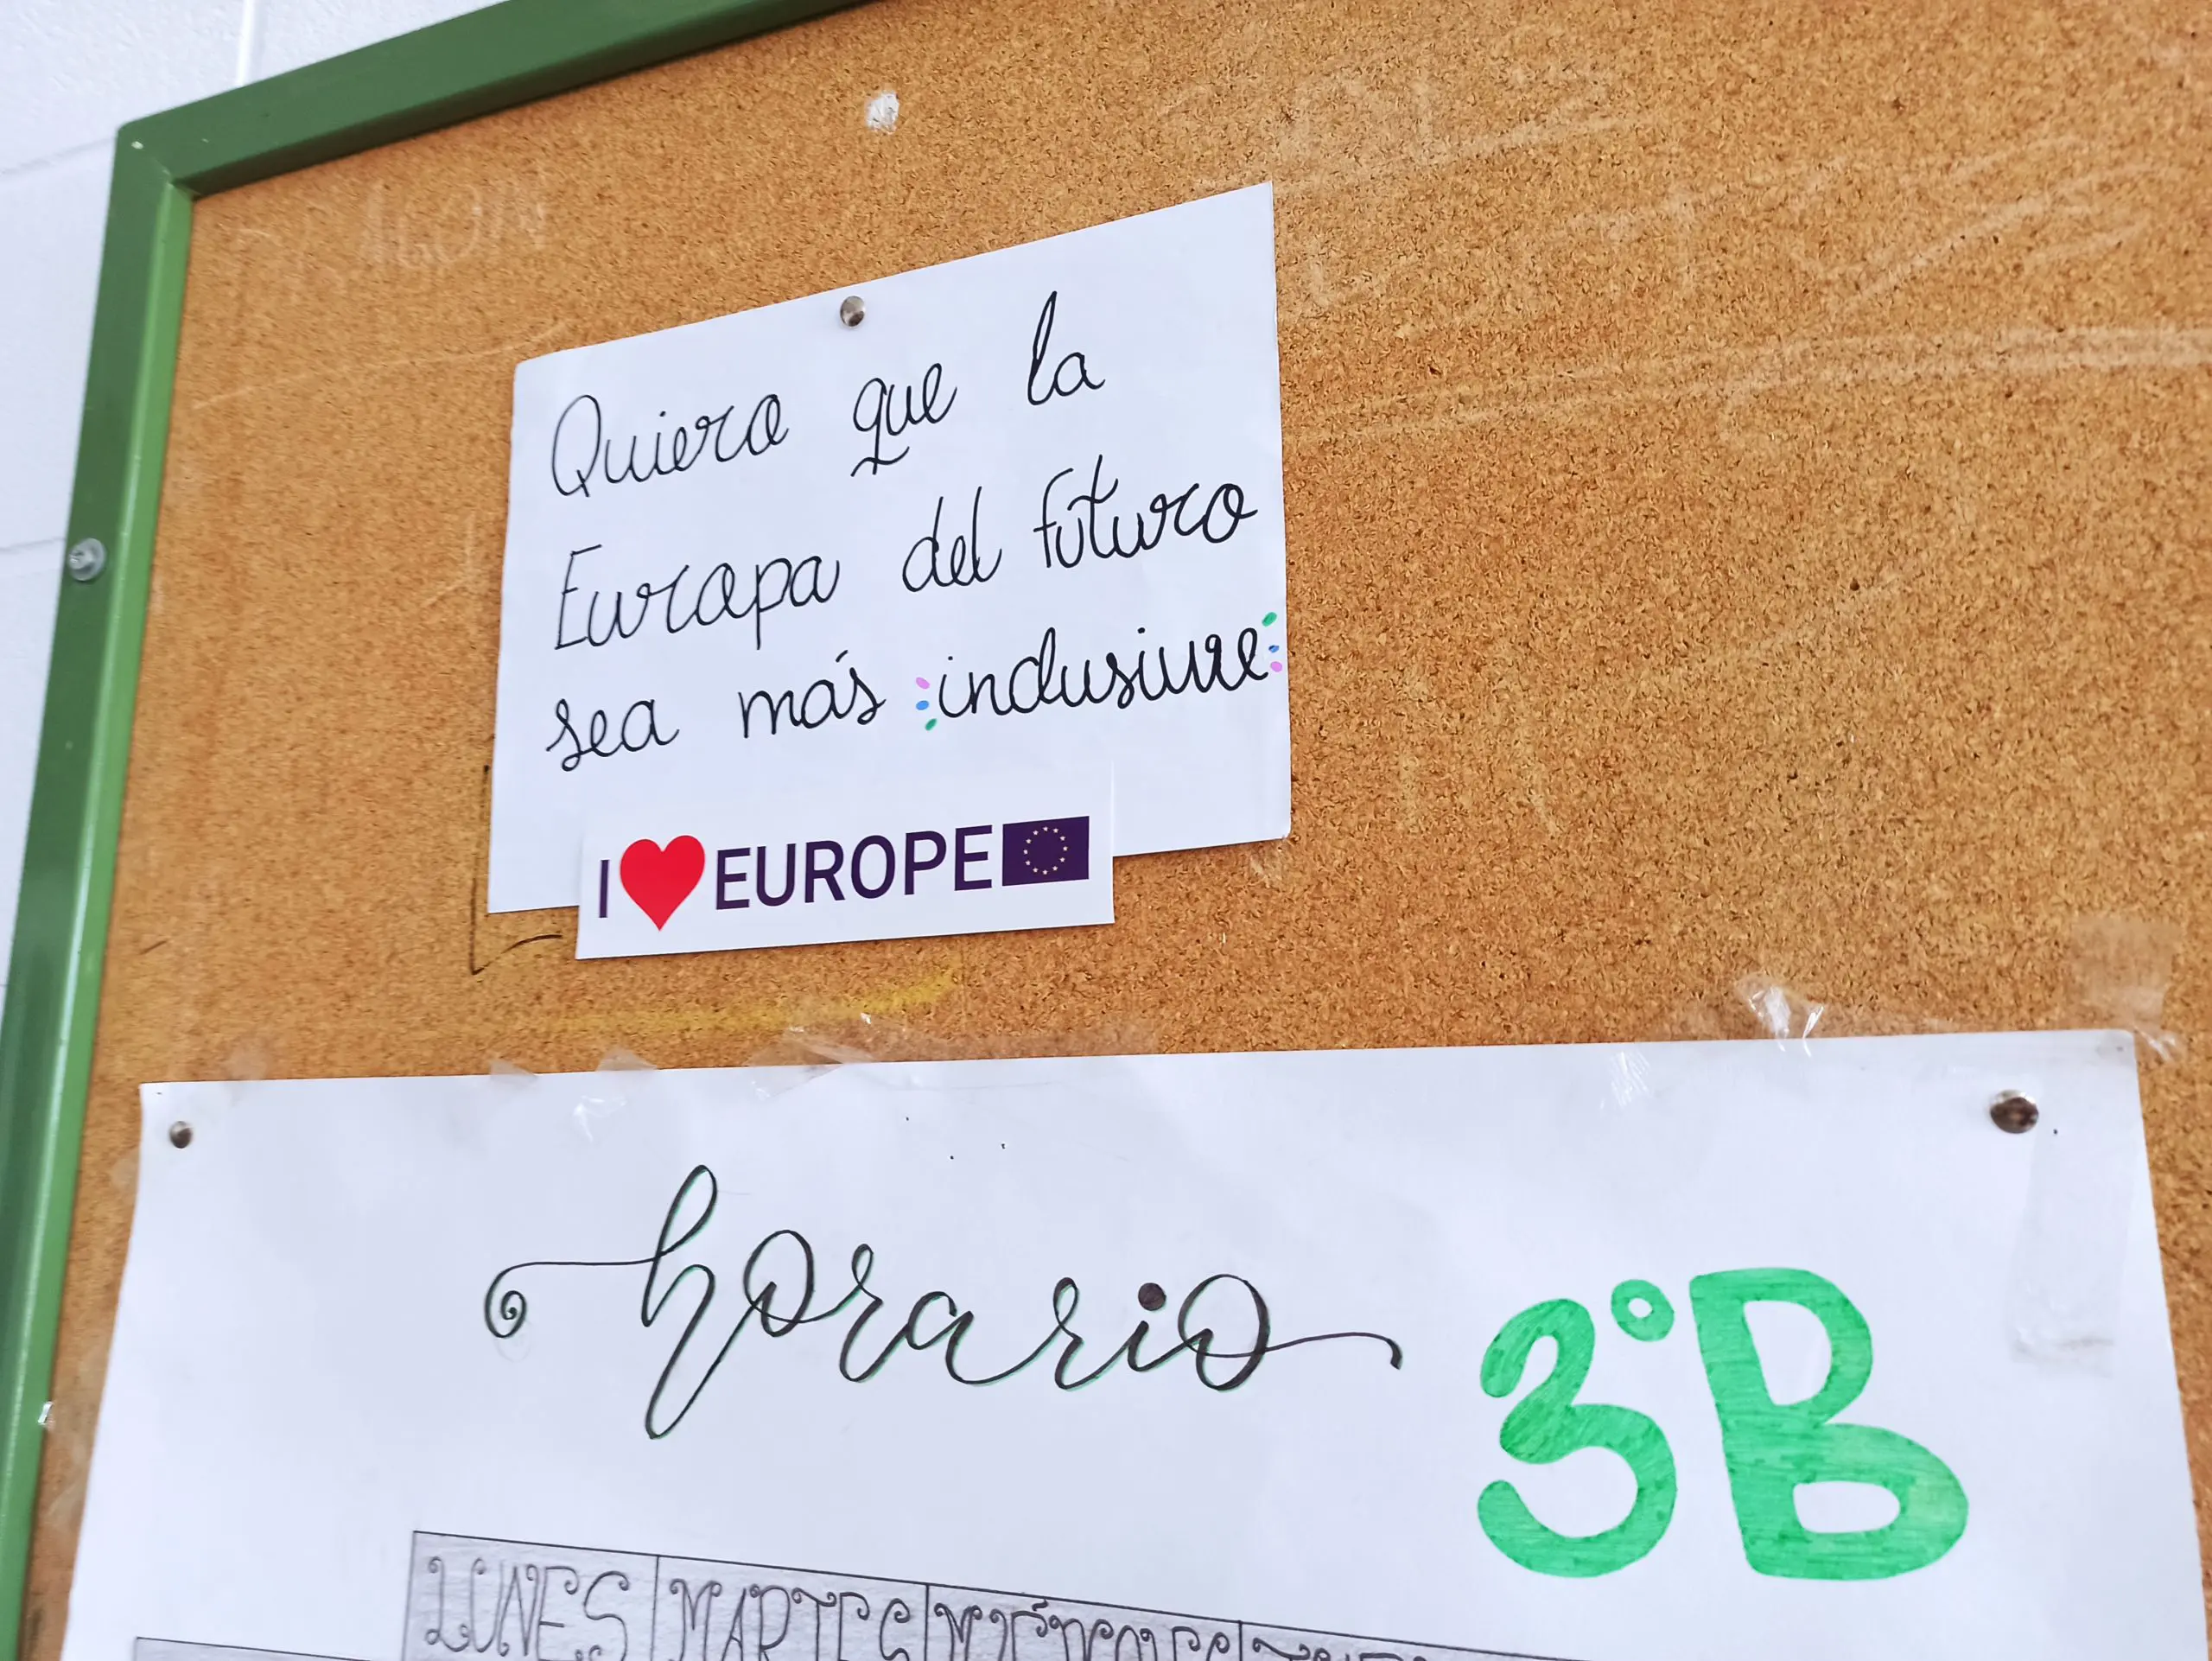 Quiero que la
Europa del futuro
sea más inclusiva
I ❤ EUROPE
horario 3ºB
LUNES MARTES MIÉRCOLES